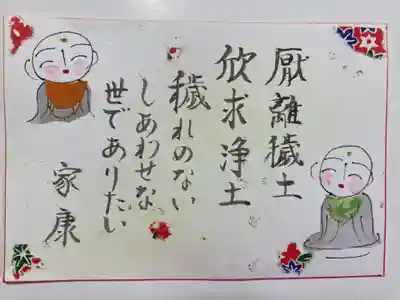 厭離穢土
欣求浄土
穢れのない
しあわせな
世でありたい
家康